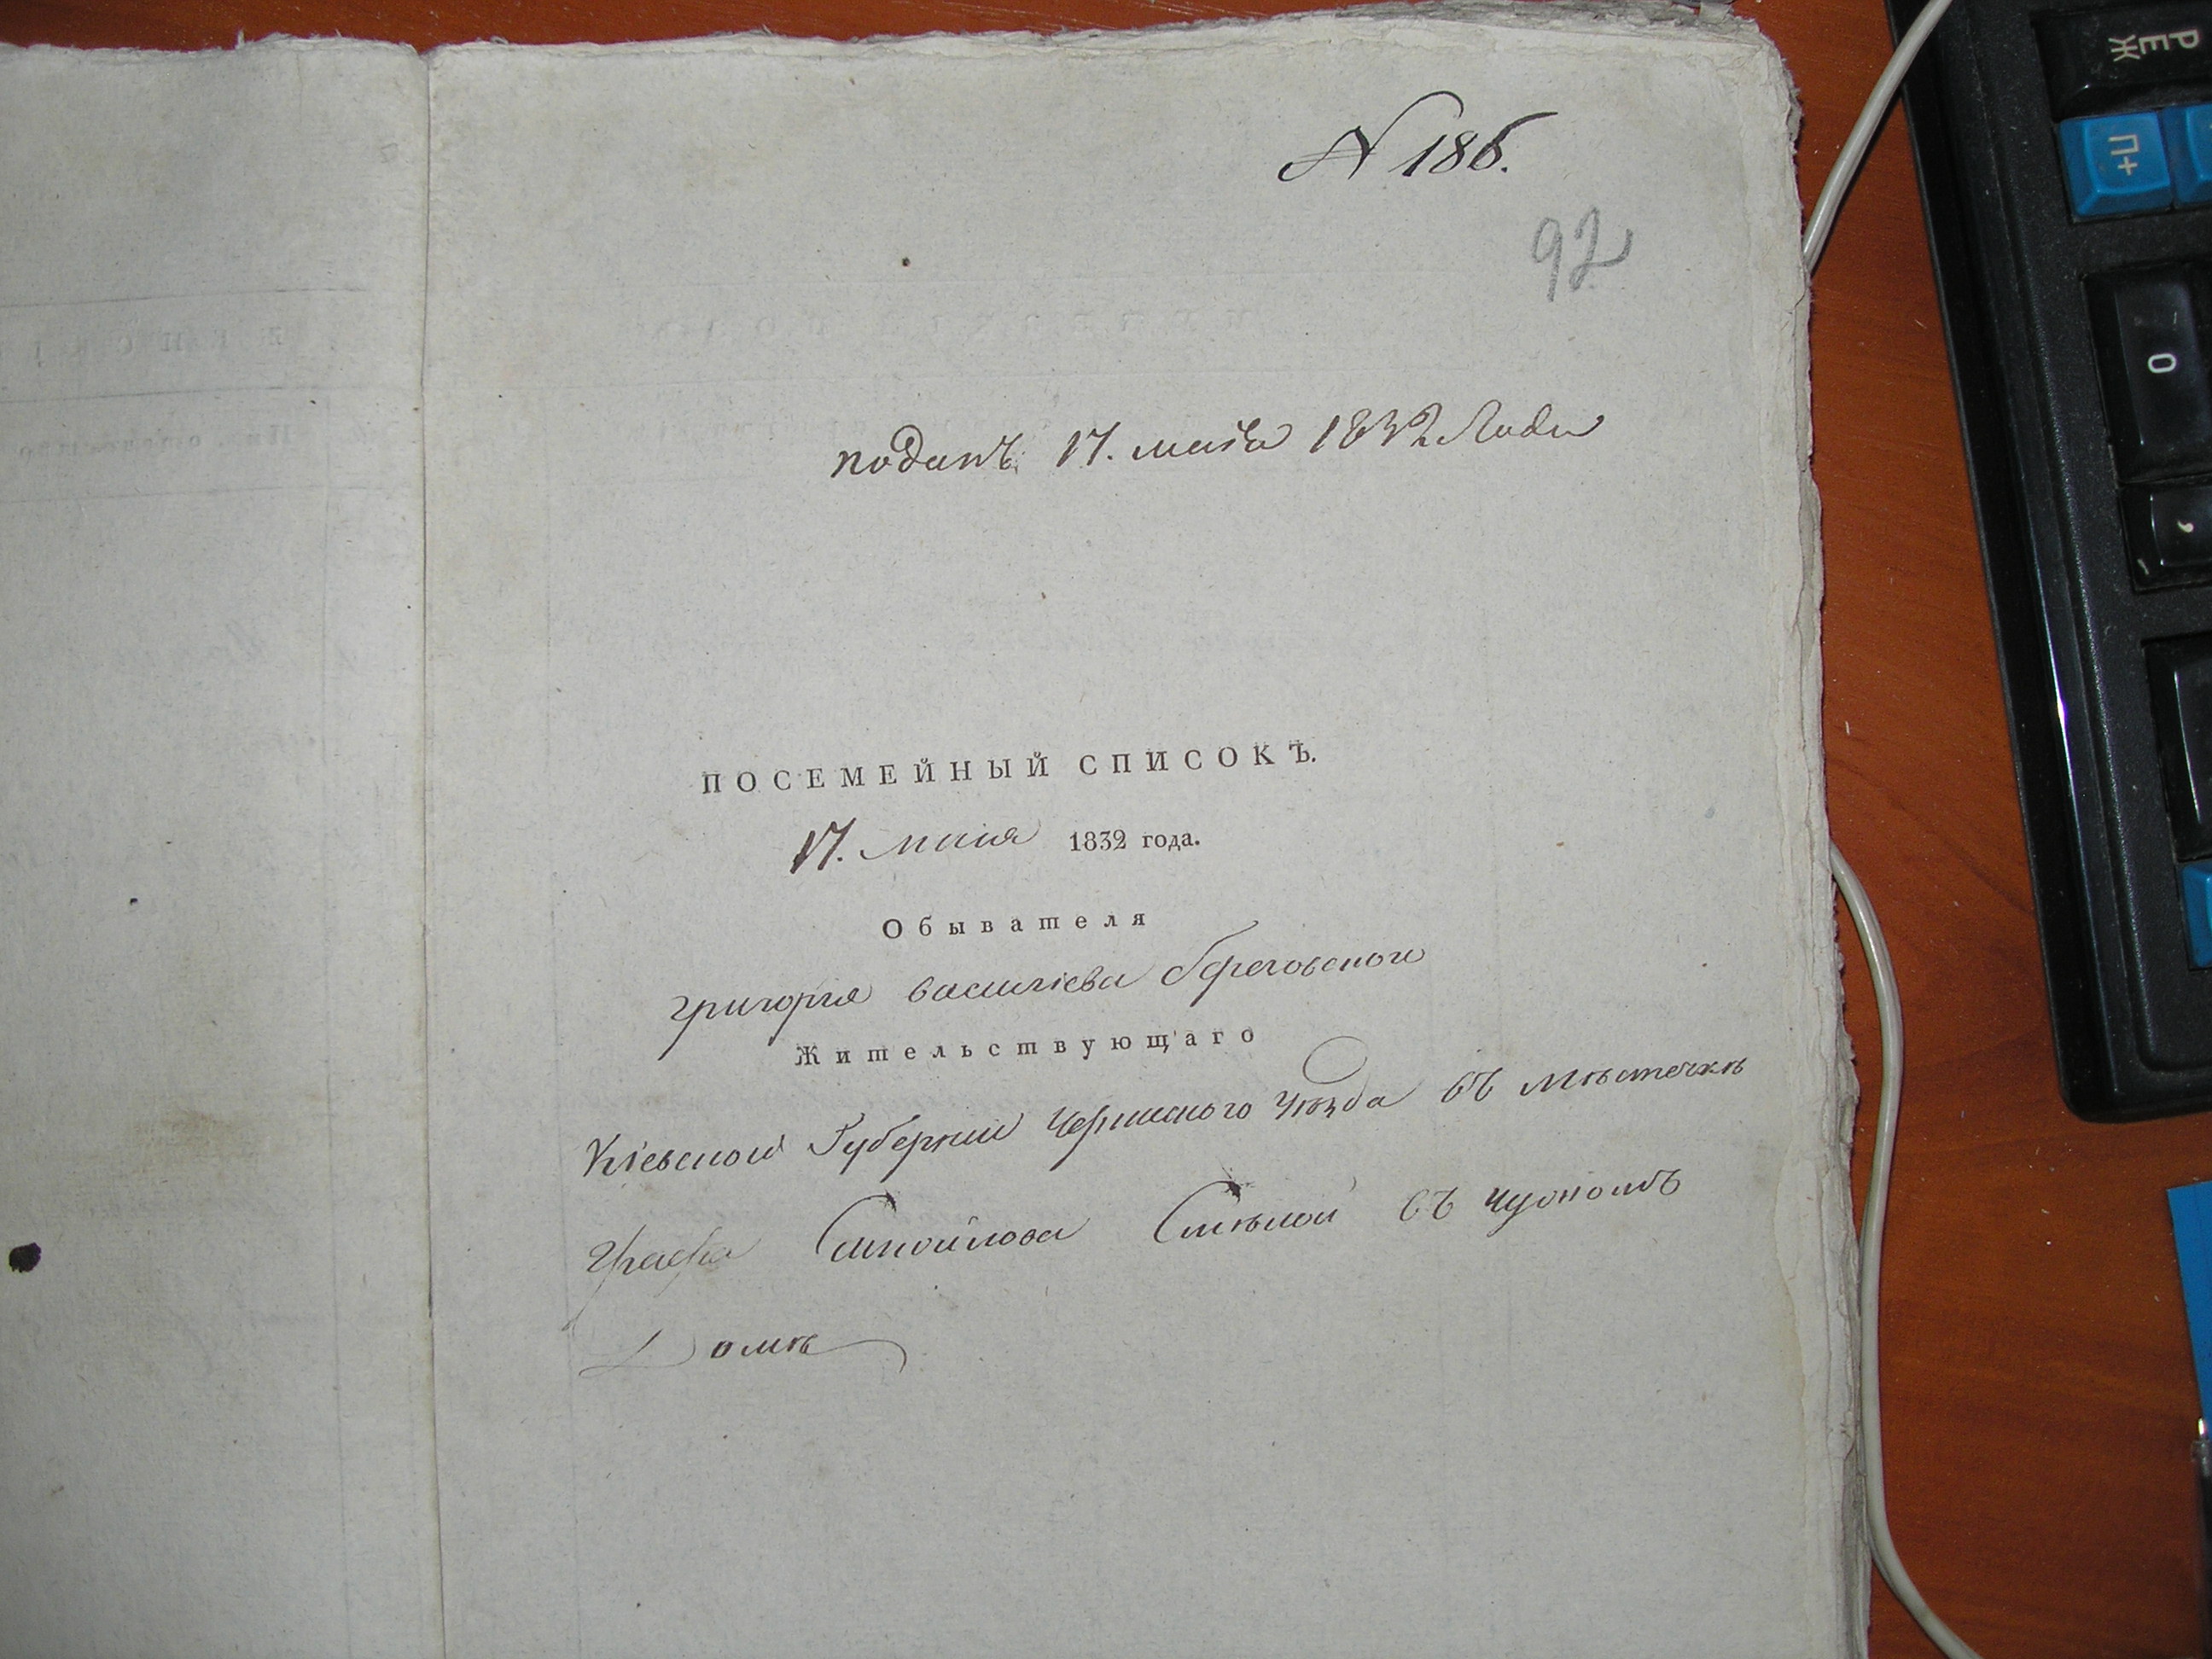 N 186.
92
поданъ 17. маія 1832 Года
ПОСЕМЕЙНЫЙ СПИСОКЪ.
17. маія 1832 года.
Обывателя
григорія василіева береговского
Жительствующаго
Кіевской Губерніи Черкаского Уѣзда въ мѣстечкѣ
графа Самойлова Смѣлой въ чужомъ
Домѣ
РЕЖ
П+
0
,